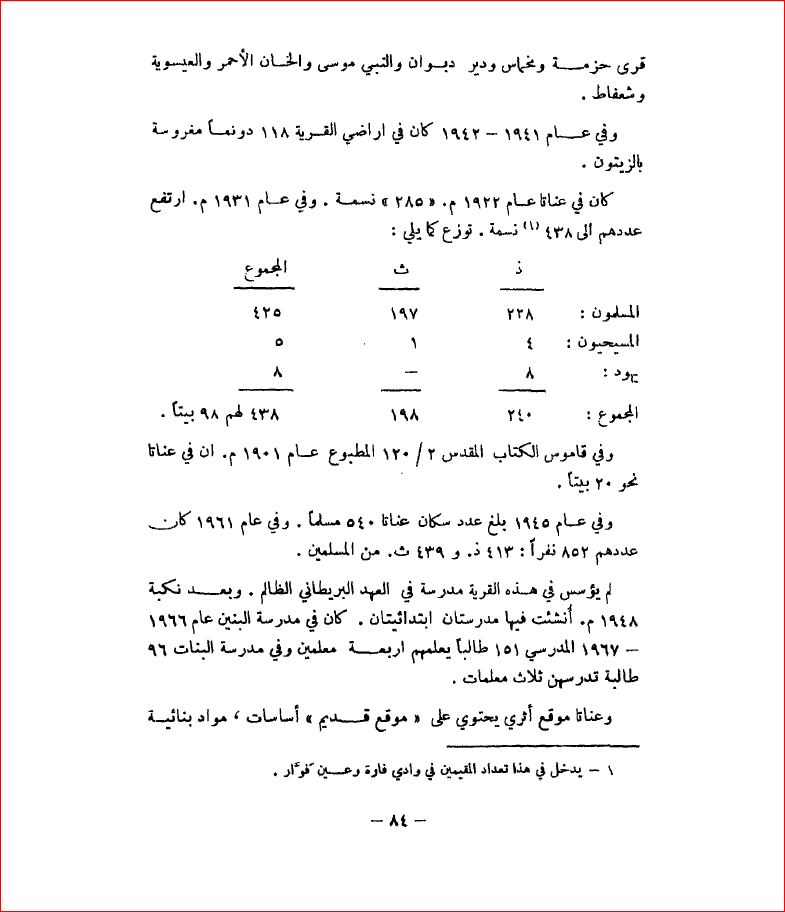 قرى حزمــة ومخماس ودير دبـوان والنبي موسى والخـان الأحمر والعيسوية
وشعفاط .
وفي عــام ١٩٤١ – ١٩٤٢ كان في اراضي القرية ١١٨ دونمـاً مغروسة
بالزيتون .
كان في عناتا عـام ١٩٢٢ م. « ٢٨٥ » نسمـة . وفي عـام ١٩٣١ م. ارتفع
عددهم الى ٤٣٨ (١) نسمة . توزع كما يلي :
ذ ث المجموع
المسلمون : ٢٢٨ ١٩٧ ٤٢٥
المسيحيون : ٤ ١ ٥
يهود : ٨ – ٨
المجموع : ٢٤٠ ١٩٨ ٤٣٨ لهم ٩٨ بيتاً .
وفي قاموس الكتاب المقدس ٢ / ١٢٠ المطبوع عــام ١٩٠١ م. ان في عناتا
نحو ٢٠ بيتاً .
وفي عــام ١٩٤٥ بلغ عدد سكان عناتا ٥٤٠ مسلماً . وفي عام ١٩٦١ كان
عددهم ٨٥٢ نفراً : ٤١٣ ذ. و ٤٣٩ ث. من المسلمين .
لم يؤسس في هـذه القرية مدرسة في العهد البريطاني الظالم . وبعـد نكبة
١٩٤٨ م. أُنشئت فيها مدرستان ابتدائيتان . كان في مدرسة البنين عام ١٩٦٦
– ١٩٦٧ المدرسي ١٥١ طالباً يعلمهم اربعــة معلمين وفي مدرسة البنات ٩٦
طالبة تدرسهن ثلاث معلمات .
وعناتا موقع أثري يحتوي على « موقع قــديم » أساسات ، مواد بنائيـة
١ – يدخل في هذا تعداد المقيمين في وادي فارة وعـين فوَّار .
– ٨٤ –